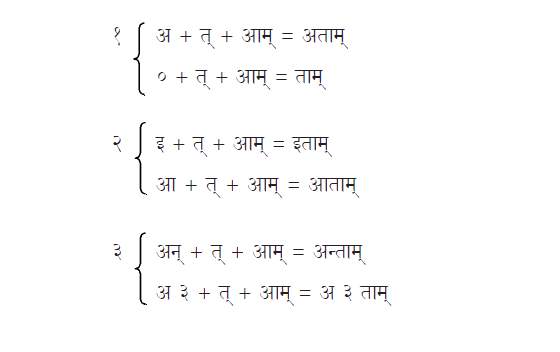 १ अ + त् + आम् = अताम्
० + त् + आम् = ताम्
२ इ + त् + आम् = इताम्
आ + त् + आम् = आताम्
३ अन् + त् + आम् = अन्ताम्
अ ३ + त् + आम् = अ ३ ताम्